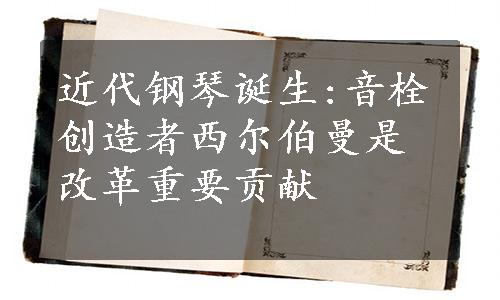 近代钢琴诞生:音栓
创造者西尔伯曼是
改革重要贡献